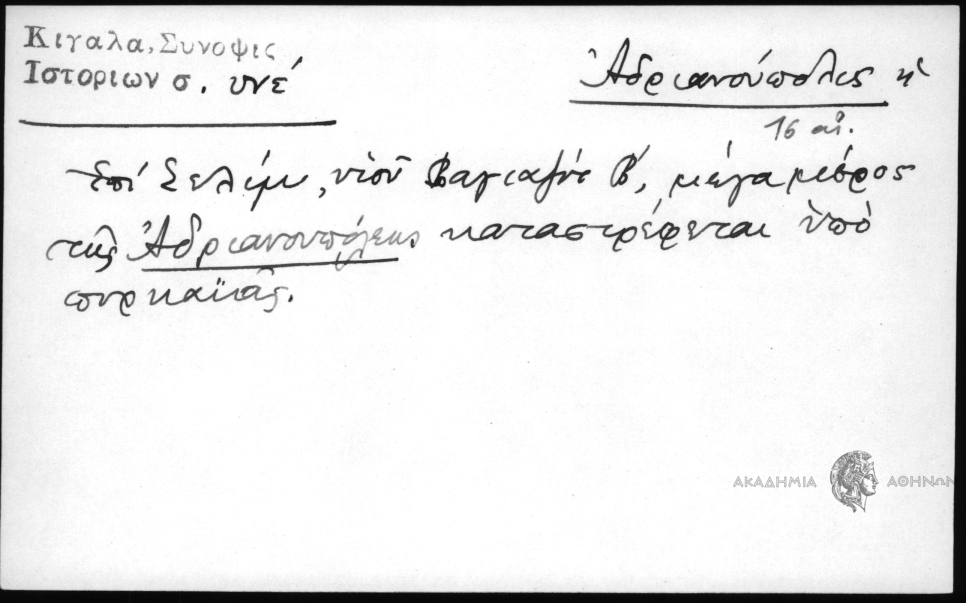 Κιγαλα, Συνοψις
Ιστοριων σ. υνέ
Ἀδριανούπολις ἡ
16 αἰ.
Ἐπί Σελίμ, υἱοῦ Βαγιαζήτ Β', μέγα μέρος
τῆς Ἀδριανουπόλεως καταστρέφεται ὑπό
πυρκαϊᾶς.
ΑΚΑΔΗΜΙΑ ΑΘΗΝΩΝ